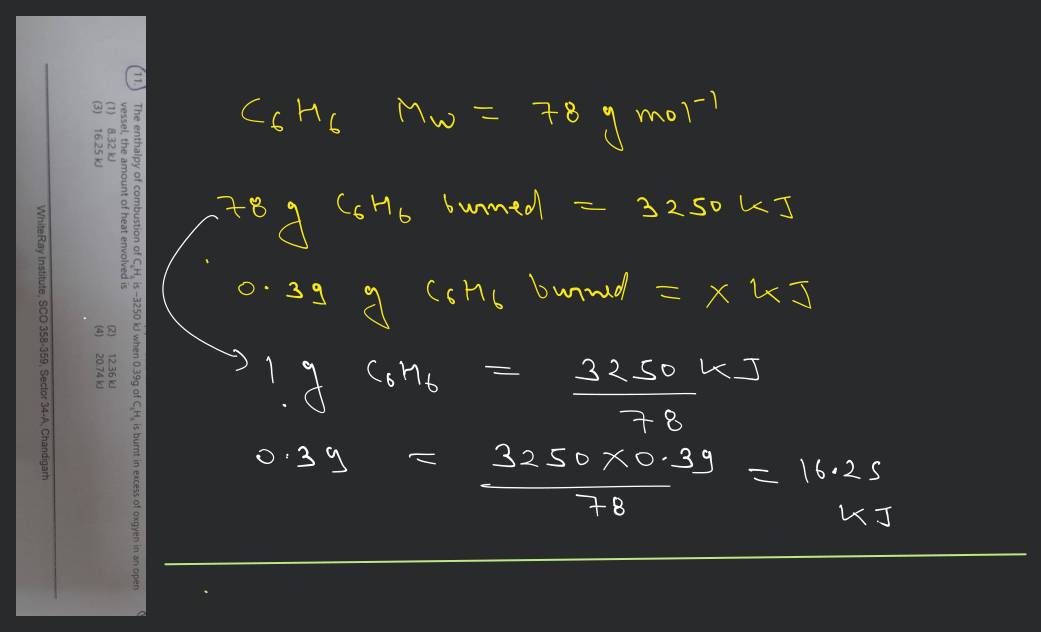 11. The enthalpy of combustion of C₆H₆ is –3250 kJ when 0.39g of C₆H₆ is burnt in excess of oxgyen in an open
vessel, the amount of heat envolved is
(1) 8.32 kJ (2) 12.36 kJ
(3) 16.25 kJ (4) 20.74 kJ
WhiteRay Institute, SCO 358-359, Sector 34-A, Chandigarh
C₆H₆ Mw = 78 g mol⁻¹
78 g C₆H₆ burned = 3250 KJ
0.39 g C₆H₆ burned = x KJ
1 g C₆H₆ = 3250 KJ / 78
0.39 = 3250 × 0.39 / 78 = 16.25 KJ